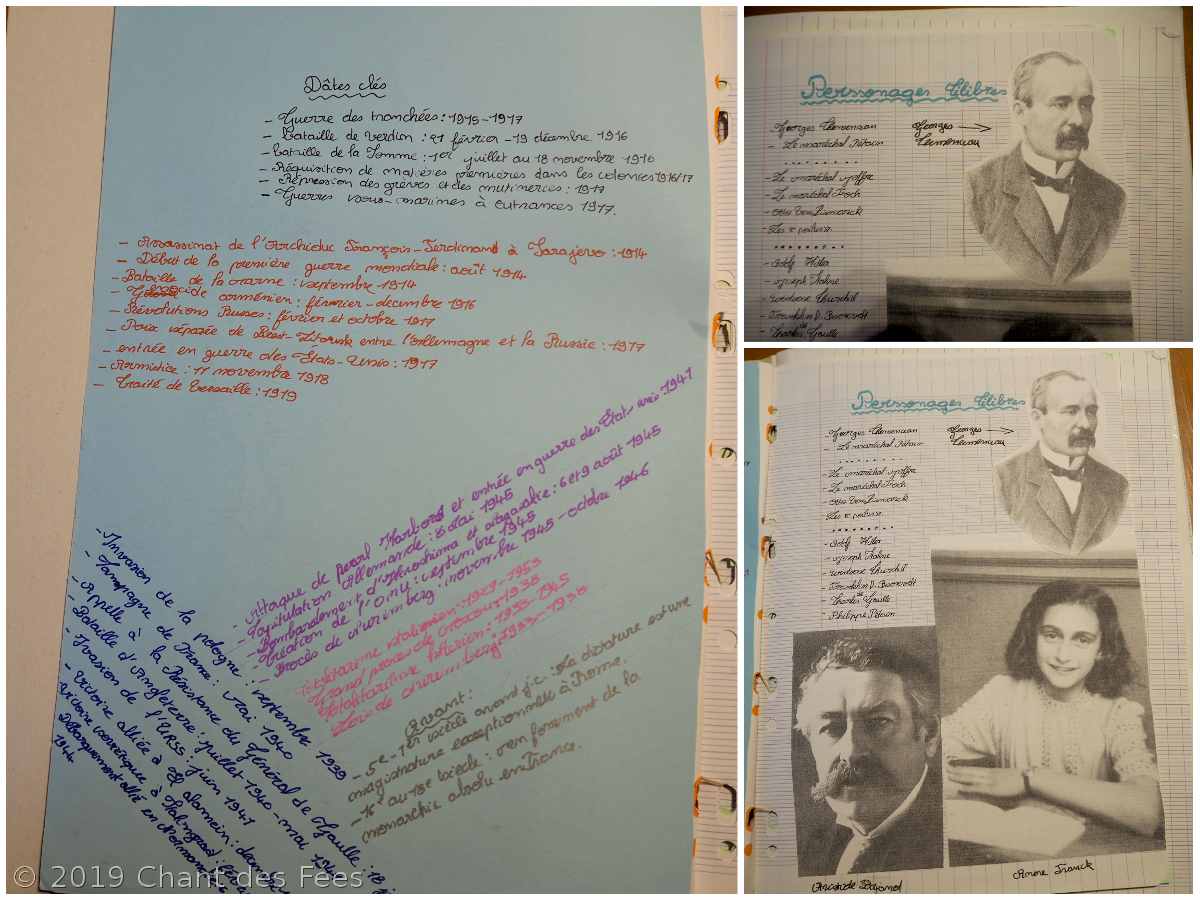 Dâtes clés
- Guerre des tranchées : 1915-1917
- Bataille de Verdun : 21 février - 19 décembre 1916
- bataille de la Somme : 1er juillet au 18 novembre 1916
- Réquisition de matières premières dans les colonies 1916/17
- Répression des grèves et des mutineries : 1917
- Guerres sous-marines à outrances 1917.
- Assassinat de l'Archiduc François-Ferdinand à Sarajevo : 1914
- Début de la première guerre mondiale : août 1914
- Bataille de la marne : septembre 1914
- Génocide arménien : février - decembre 1916
- Révolutions Russes : février et octobre 1917
- Paix séparée de Brest-Litovsk entre l'Allemagne et la Russie : 1917
- entrée en guerre des États-Unis : 1917
- Armistice : 11 novembre 1918
- Traité de Versaille : 1919
- Attaque de pearl Harbord et entrée en guerre des États unis 1941
- Capitulation Allemande : 8 mai 1945
- Bombardement d'Hiroshima et Nagasakie : 6 et 9 août 1945
- Création de l'ONU : septembre 1945
- Procès de Nuremberg : novembre 1945 - octobre 1946
Totalitarisme stalinien : 1929-1953
Grand procès de Moscou : 1938
totalitarisme hitlérien : 1933-1945
Lois de Nuremberg : 1933-1938
Avant :
- 5e-1er siècle avant j.c : La dictature est une
magistrature exceptionnelle à Rome.
- 16e au 18e siècle : renforcement de la
monarchie absolu en France.
- Invasion de la pologne : septembre 1939
- Campagne de France : mai 1940
- Appelle à la Résistance du Général de Gaulle : 18
- Bataille d'Angleterre : juillet 1940 - mai
- Invasion de l'URSS : juin 1941
- Victoire alliée à El Alamein :
Victoire soviétique à Stalingrad :
Débarquement allié en
1944
© 2019 Chant des Fées
Perssonages Célibres
- Georges Clemenceau
- Le maréchal Pétain
........
- Le maréchal Joffre
- Le maréchal Foch
- Otto Von Bismarck
- Les
........
- Adolf Hitler
- Joseph Staline
- Winston Churchill
- Franklin D. Roosevelt
- Charles de Gaulle
Georges →
Clemenceau
Perssonages Célibres
- Georges Clemenceau
- Le maréchal Pétain
........
- Le maréchal Joffre
- Le maréchal Foch
- Otto Von Bismarck
- Les
........
- Adolf Hitler
- Joseph Staline
- Winston Churchill
- Franklin D. Roosevelt
- Charles de Gaulle
- Philippe Pétain
Georges →
Clemenceau
Anne Franck